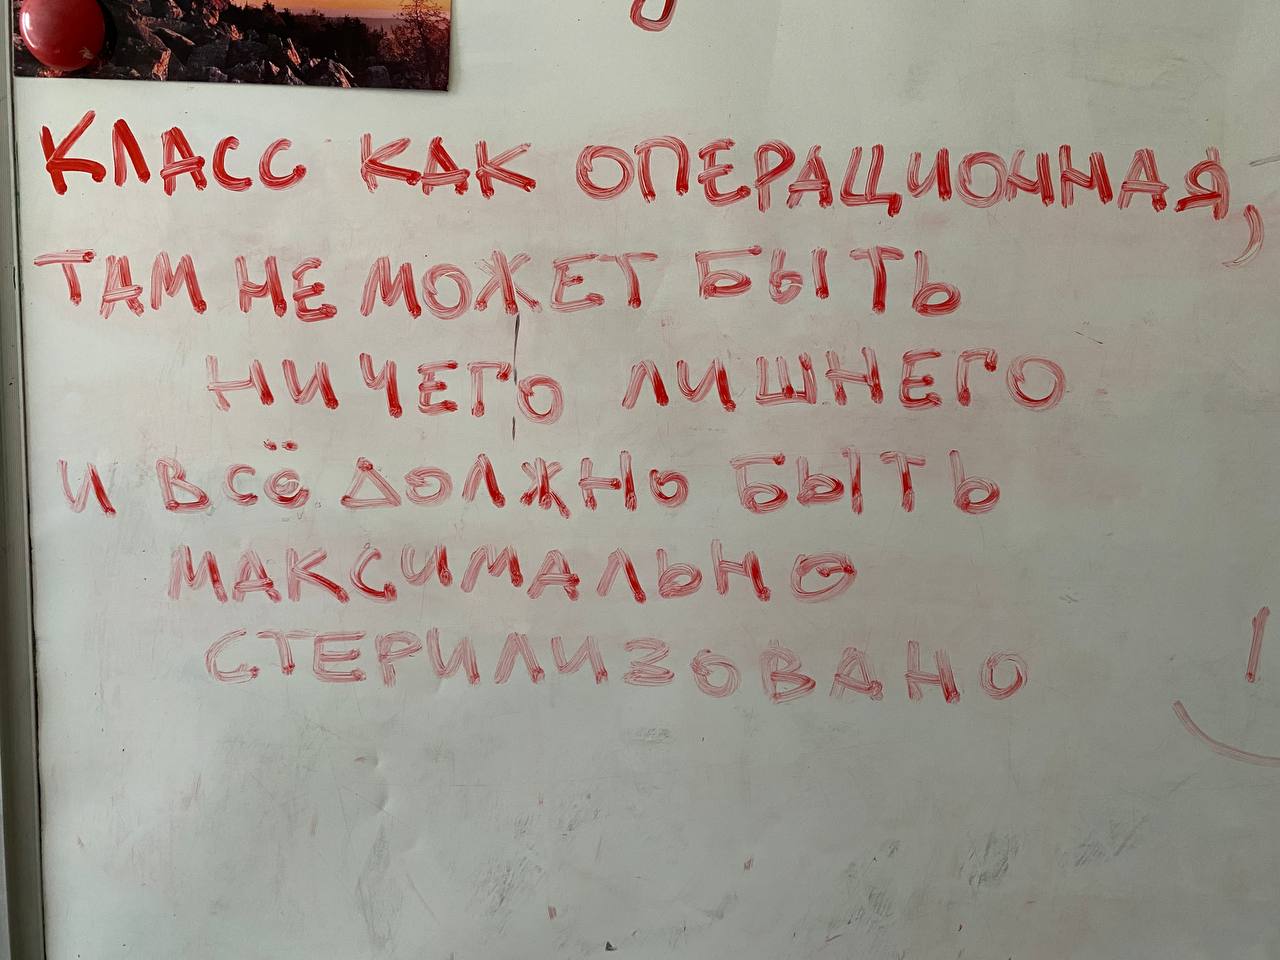 КЛАСС КАК ОПЕРАЦИОННАЯ,
ТАМ НЕ МОЖЕТ БЫТЬ
НИЧЕГО ЛИШНЕГО
И ВСЁ ДОЛЖНО БЫТЬ
МАКСИМАЛЬНО
СТЕРИЛИЗОВАНО